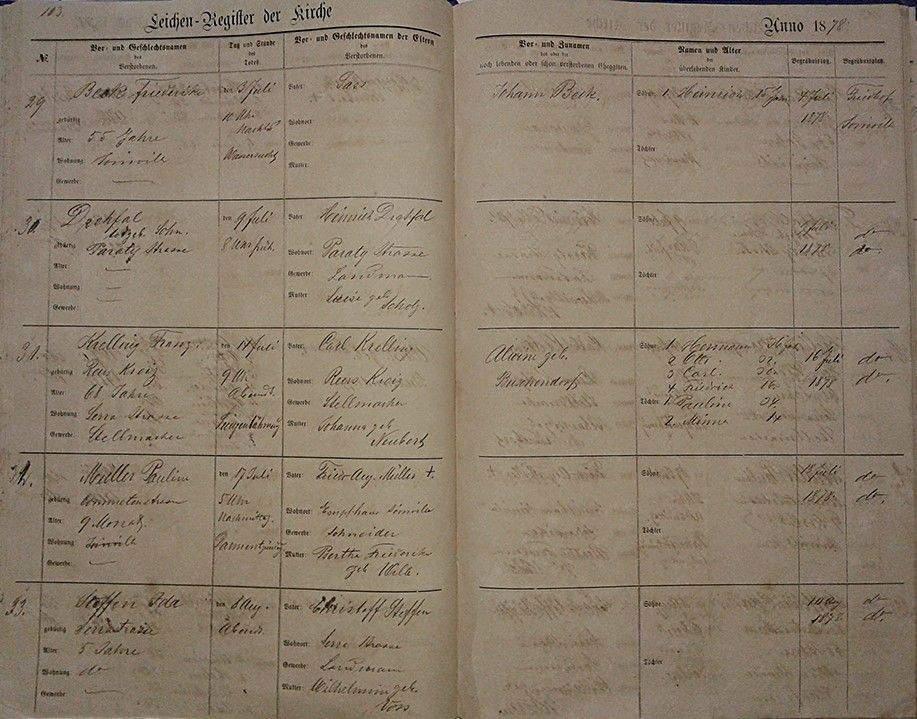 103.
Leichen-Register der Kirche
Anno 1878.
№
Vor- und Geschlechtsnamen
des
Verstorbenen.
Tag und Stunde
des
Todes.
Vor- und Geschlechtsnamen der Eltern
des
Verstorbenen.
Vor- und Zunamen
des oder der
noch lebenden oder schon verstorbenen Ehegatten.
Namen und Alter
der
überlebenden Kinder.
Begräbnißtag.
Begräbnißplatz.
29
Beck Friederike
gebürtig
Alter: 55 Jahre
Wohnung
Gewerbe: —
den 3 Juli
10 Uhr
Nachts
Wassersucht
Vater:
Wohnort:
Gewerbe:
Mutter:
Johann Beck.
Söhne: 1. Heinrich
Töchter:
7 Juli
1878
Friedhof
30.
gebürtig Paraty Strasse
Alter: —
Wohnung: —
Gewerbe: —
den 9 Juli
8 Uhr früh.
Vater: Heinrich
Wohnort: Paraty Strasse
Gewerbe: Landmann
Mutter: Luise geb
Scholz.
Söhne:
Töchter:
Juli
1878
do
do
31.
Krelling Franz.
gebürtig
Alter: 68 Jahre
Wohnung: Serra Strasse
Gewerbe: Stellmacher
den 14 Juli
9 Uhr
Abends
Vater: Carl Krelling
Wohnort:
Gewerbe: Stellmacher
Mutter: Johanna geb
Neubert
Alwine geb.
Söhne: 1. Hermann
2 Otto
3 Carl.
4 Friedrich
Töchter: 1. Pauline 24
2. Minna 14
16 Juli
1878
do
do.
32.
Müller Pauline
gebürtig
Alter: 9 Monate
Wohnung
Gewerbe: —
den 17 Juli
5 Uhr
Nachmittag.
Vater: Friedr Aug. Müller +
Wohnort:
Gewerbe: Schneider
Mutter: Bertha Friederike
geb Wilk.
Söhne:
Töchter:
18 Juli
1878
do
do.
33.
Steffen Ida
gebürtig Serrastrasse
Alter: 5 Jahre
Wohnung: do
Gewerbe: —
den 8 Aug.
Abends.
Vater: Christoff Steffen
Wohnort: Serra Strasse
Gewerbe: Landmann
Mutter: Wilhelmine geb.
Voss
Söhne:
Töchter:
10 Aug
1878.
do
do.